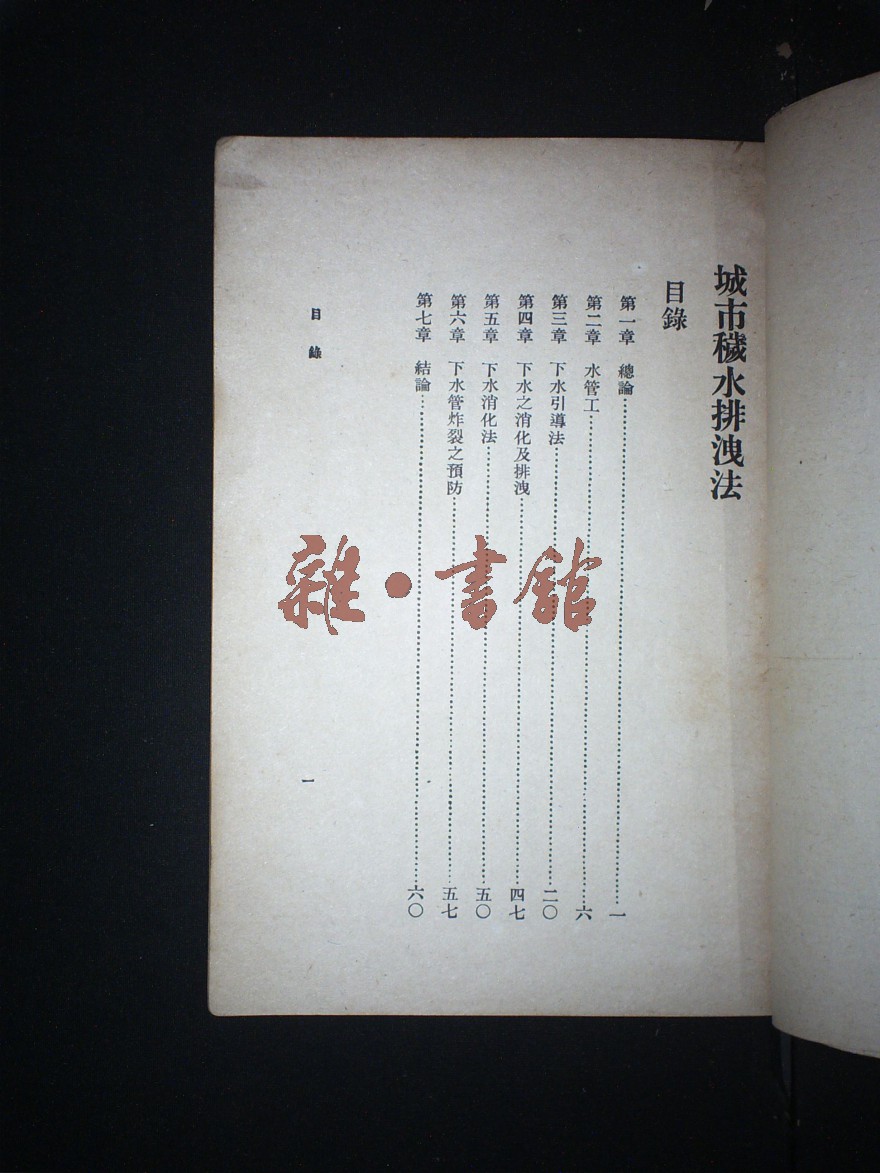 城市穢水排洩法
目錄
第一章　總論……一
第二章　水管工……六
第三章　下水引導法……二〇
第四章　下水之消化及排洩……四七
第五章　下水消化法……五〇
第六章　下水管炸裂之預防……五七
第七章　結論……六〇
目錄
一
雜·書館